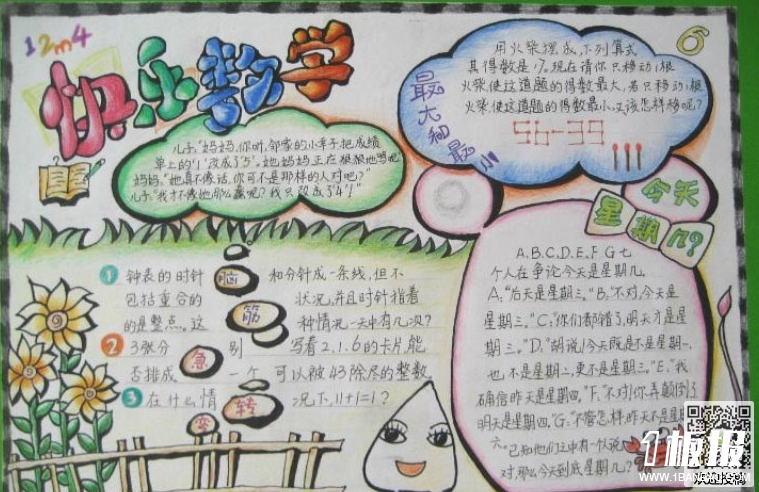 12m4
快乐数学
儿子:"妈妈,你听,邻家的小
把成绩
单上的'1'改成了'5'。她妈妈正在狠狠地骂呢
妈妈:"她真不像话,你可不是那样的人对吧?"
儿子:"我才不像她那么蠢呢?我只改成了'4'!"
6
最大和最小
用火柴摆成下列算式
其得数是17,现在请你只移动1根
火柴,使这道题的得数最大,若只移动1根
火柴,使这道题的得数最小,又该怎样移呢?
56-39
今天
星期几?
A、B、C、D、E、F、G七
个人在争论今天是星期几。
A:"后天是星期三。"B:"不对,今天是
星期三。"C:"你们都错了,明天才是星
期三。"D:"胡说!今天既是不是星期一,
也不是星期二,更不是星期三。"E:"我
确信昨天是星期四。"F:"不对!你弄颠倒了
明天是星期四。"G:"不管怎样,昨天不是星期
六。"已知他们之中有一个人说
对,那么今天到底星期几?
脑筋急转变
1 钟表的时针和分针成一条线,但不
包括重合的状况,并且时针指着
的是整点。这种情况一天中有几次?
2 3张分别写着2.1.6的卡片,能
否排成一个可以被43除尽的整数
3 在什么情况下,1+1=1?
板报
WWW.1BANBAO.COM